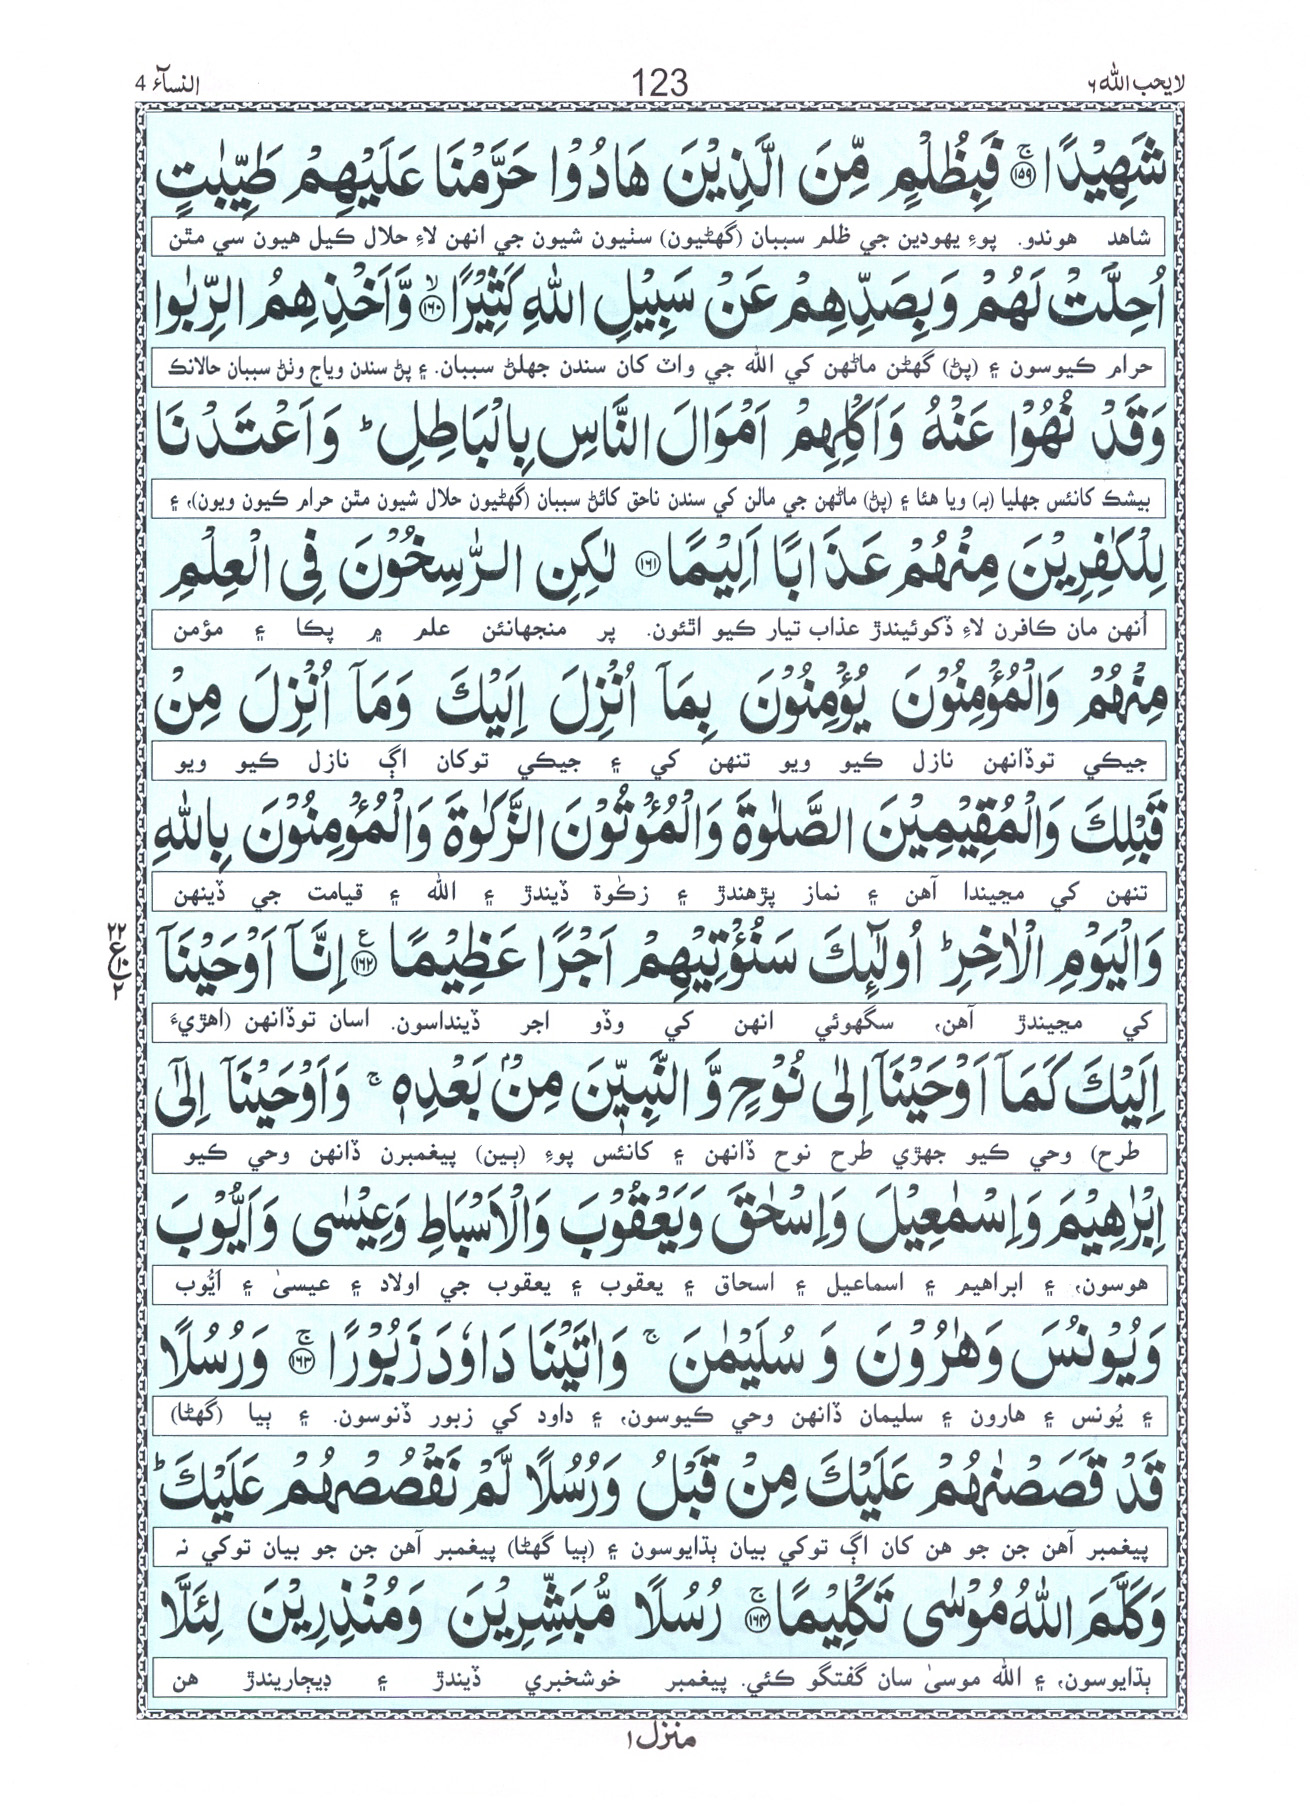 النسآء 4
123
لا یحب الله ٦
شَهِیْدًا ۚ﴿۱۵۹﴾ فَبِظُلْمٍ مِّنَ الَّذِیْنَ هَادُوْا حَرَّمْنَا عَلَیْهِمْ طَیِّبٰتٍ
شاهد هوندو. پوءِ يهودين جي ظلم سببان (گهڻيون) سٺيون شيون جي انهن لاءِ حلال ڪيل هيون سي مٿن
اُحِلَّتْ لَهُمْ وَبِصَدِّهِمْ عَنْ سَبِیْلِ اللّٰهِ كَثِیْرًا ۙ﴿۱۶۰﴾ وَّاَخْذِهِمُ الرِّبٰوا
حرام ڪيوسون ۽ (پڻ) گهڻن ماڻهن کي الله جي واٽ کان سندن جهلڻ سببان. ۽ پڻ سندن وياج وٺڻ سببان حالانڪ
وَقَدْ نُهُوْا عَنْهُ وَاَكْلِهِمْ اَمْوَالَ النَّاسِ بِالْبَاطِلِ ؕ وَاَعْتَدْنَا
بيشڪ کانئس جهليا (به) ويا هئا ۽ (پڻ) ماڻهن جي مالن کي سندن ناحق کائڻ سببان (گهڻيون حلال شيون مٿن حرام ڪيون ويون)، ۽
لِلْكٰفِرِیْنَ مِنْهُمْ عَذَابًا اَلِیْمًا ﴿۱۶۱﴾ لٰكِنِ الرّٰسِخُوْنَ فِی الْعِلْمِ
اُنهن مان ڪافرن لاءِ ڏکوئيندڙ عذاب تيار ڪيو اٿئون. پر منجهانئن علم ۾ پڪا ۽ مؤمن
مِنْهُمْ وَالْمُؤْمِنُوْنَ یُؤْمِنُوْنَ بِمَاۤ اُنْزِلَ اِلَیْكَ وَمَاۤ اُنْزِلَ مِنْ
جيڪي توڏانهن نازل ڪيو ويو تنهن کي ۽ جيڪي توکان اڳ نازل ڪيو ويو
قَبْلِكَ وَالْمُقِیْمِیْنَ الصَّلٰوةَ وَالْمُؤْتُوْنَ الزَّكٰوةَ وَالْمُؤْمِنُوْنَ بِاللّٰهِ
تنهن کي مڃيندا آهن ۽ نماز پڙهندڙ ۽ زڪٰوة ڏيندڙ ۽ الله ۽ قيامت جي ڏينهن
وَالْیَوْمِ الْاٰخِرِ ؕ اُولٰٓئِكَ سَنُؤْتِیْهِمْ اَجْرًا عَظِیْمًا ﴿۱۶۲﴾ع اِنَّاۤ اَوْحَیْنَاۤ
۲۲
ع ۱۰
۲
کي مڃيندڙ آهن، سگهوئي انهن کي وڏو اجر ڏينداسون. اسان توڏانهن (اهڙيءَ
اِلَیْكَ كَمَاۤ اَوْحَیْنَاۤ اِلٰی نُوْحٍ وَّالنَّبِیّٖنَ مِنْۢ بَعْدِهٖ ۚ وَاَوْحَیْنَاۤ اِلٰۤی
طرح) وحي ڪيو جهڙي طرح نوح ڏانهن ۽ کانئس پوءِ (ٻين) پيغمبرن ڏانهن وحي ڪيو
اِبْرٰهِیْمَ وَاِسْمٰعِیْلَ وَاِسْحٰقَ وَیَعْقُوْبَ وَالْاَسْبَاطِ وَعِیْسٰی وَاَیُّوْبَ
هوسون، ۽ ابراهيم ۽ اسماعيل ۽ اسحاق ۽ يعقوب ۽ يعقوب جي اولاد ۽ عيسىٰ ۽ اَيُّوب
وَیُوْنُسَ وَهٰرُوْنَ وَ سُلَیْمٰنَ ۚ وَاٰتَیْنَا دَاوٗدَ زَبُوْرًا ۚ﴿۱۶۳﴾ وَرُسُلًا
۽ يُونس ۽ هارون ۽ سليمان ڏانهن وحي ڪيوسون، ۽ داود کي زبور ڏنوسون. ۽ ٻيا (گهڻا)
قَدْ قَصَصْنٰهُمْ عَلَیْكَ مِنْ قَبْلُ وَرُسُلًا لَّمْ نَقْصُصْهُمْ عَلَیْكَ ؕ
پيغمبر آهن جن جو هن کان اڳ توکي بيان ٻڌايوسون ۽ (ٻيا گهڻا) پيغمبر آهن جن جو بيان توکي نہ
وَكَلَّمَ اللّٰهُ مُوْسٰی تَكْلِیْمًا ۚ﴿۱۶۴﴾ رُسُلًا مُّبَشِّرِیْنَ وَمُنْذِرِیْنَ لِئَلَّا
ٻڌايوسون، ۽ الله موسىٰ سان گفتگو ڪئي. پيغمبر خوشخبري ڏيندڙ ۽ ڊيڄاريندڙ هن
منزل ۱